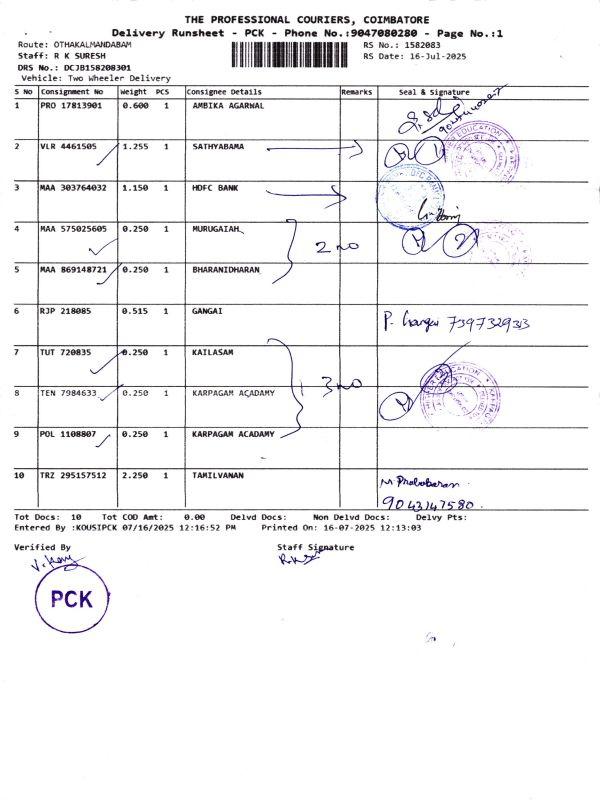 THE PROFESSIONAL COURIERS, COIMBATORE
Delivery Runsheet - PCK - Phone No.:9047080280 - Page No.:1
Route: OTHAKALMANDABAM
RS No.: 1582083
Staff: R K SURESH
RS Date: 16-Jul-2025
DRS No.: DCJB158208301
Vehicle: Two Wheeler Delivery
S No Consignment No Weight PCS Consignee Details Remarks Seal & Signature
1 PRO 17813901 0.600 1 AMBIKA AGARWAL
2 VLR 4461505 1.255 1 SATHYABAMA
3 MAA 303764032 1.150 1 HDFC BANK
4 MAA 575025605 0.250 1 MURUGAIAH
2 no
5 MAA 869148721 0.250 1 BHARANIDHARAN
6 RJP 218085 0.515 1 GANGAI P. Gangai 7397329313
7 TUT 720835 0.250 1 KAILASAM
3 no
8 TEN 7984633 0.250 1 KARPAGAM ACADAMY
9 POL 1108807 0.250 1 KARPAGAM ACADAMY
10 TRZ 295157512 2.250 1 TAMILVANAN M. Prabakaran
9043147580.
Tot Docs: 10 Tot COD Amt: 0.00 Delvd Docs: Non Delvd Docs: Delvy Pts:
Entered By :KOUSIPCK 07/16/2025 12:16:52 PM Printed On: 16-07-2025 12:13:03
Verified By Staff Signature
PCK